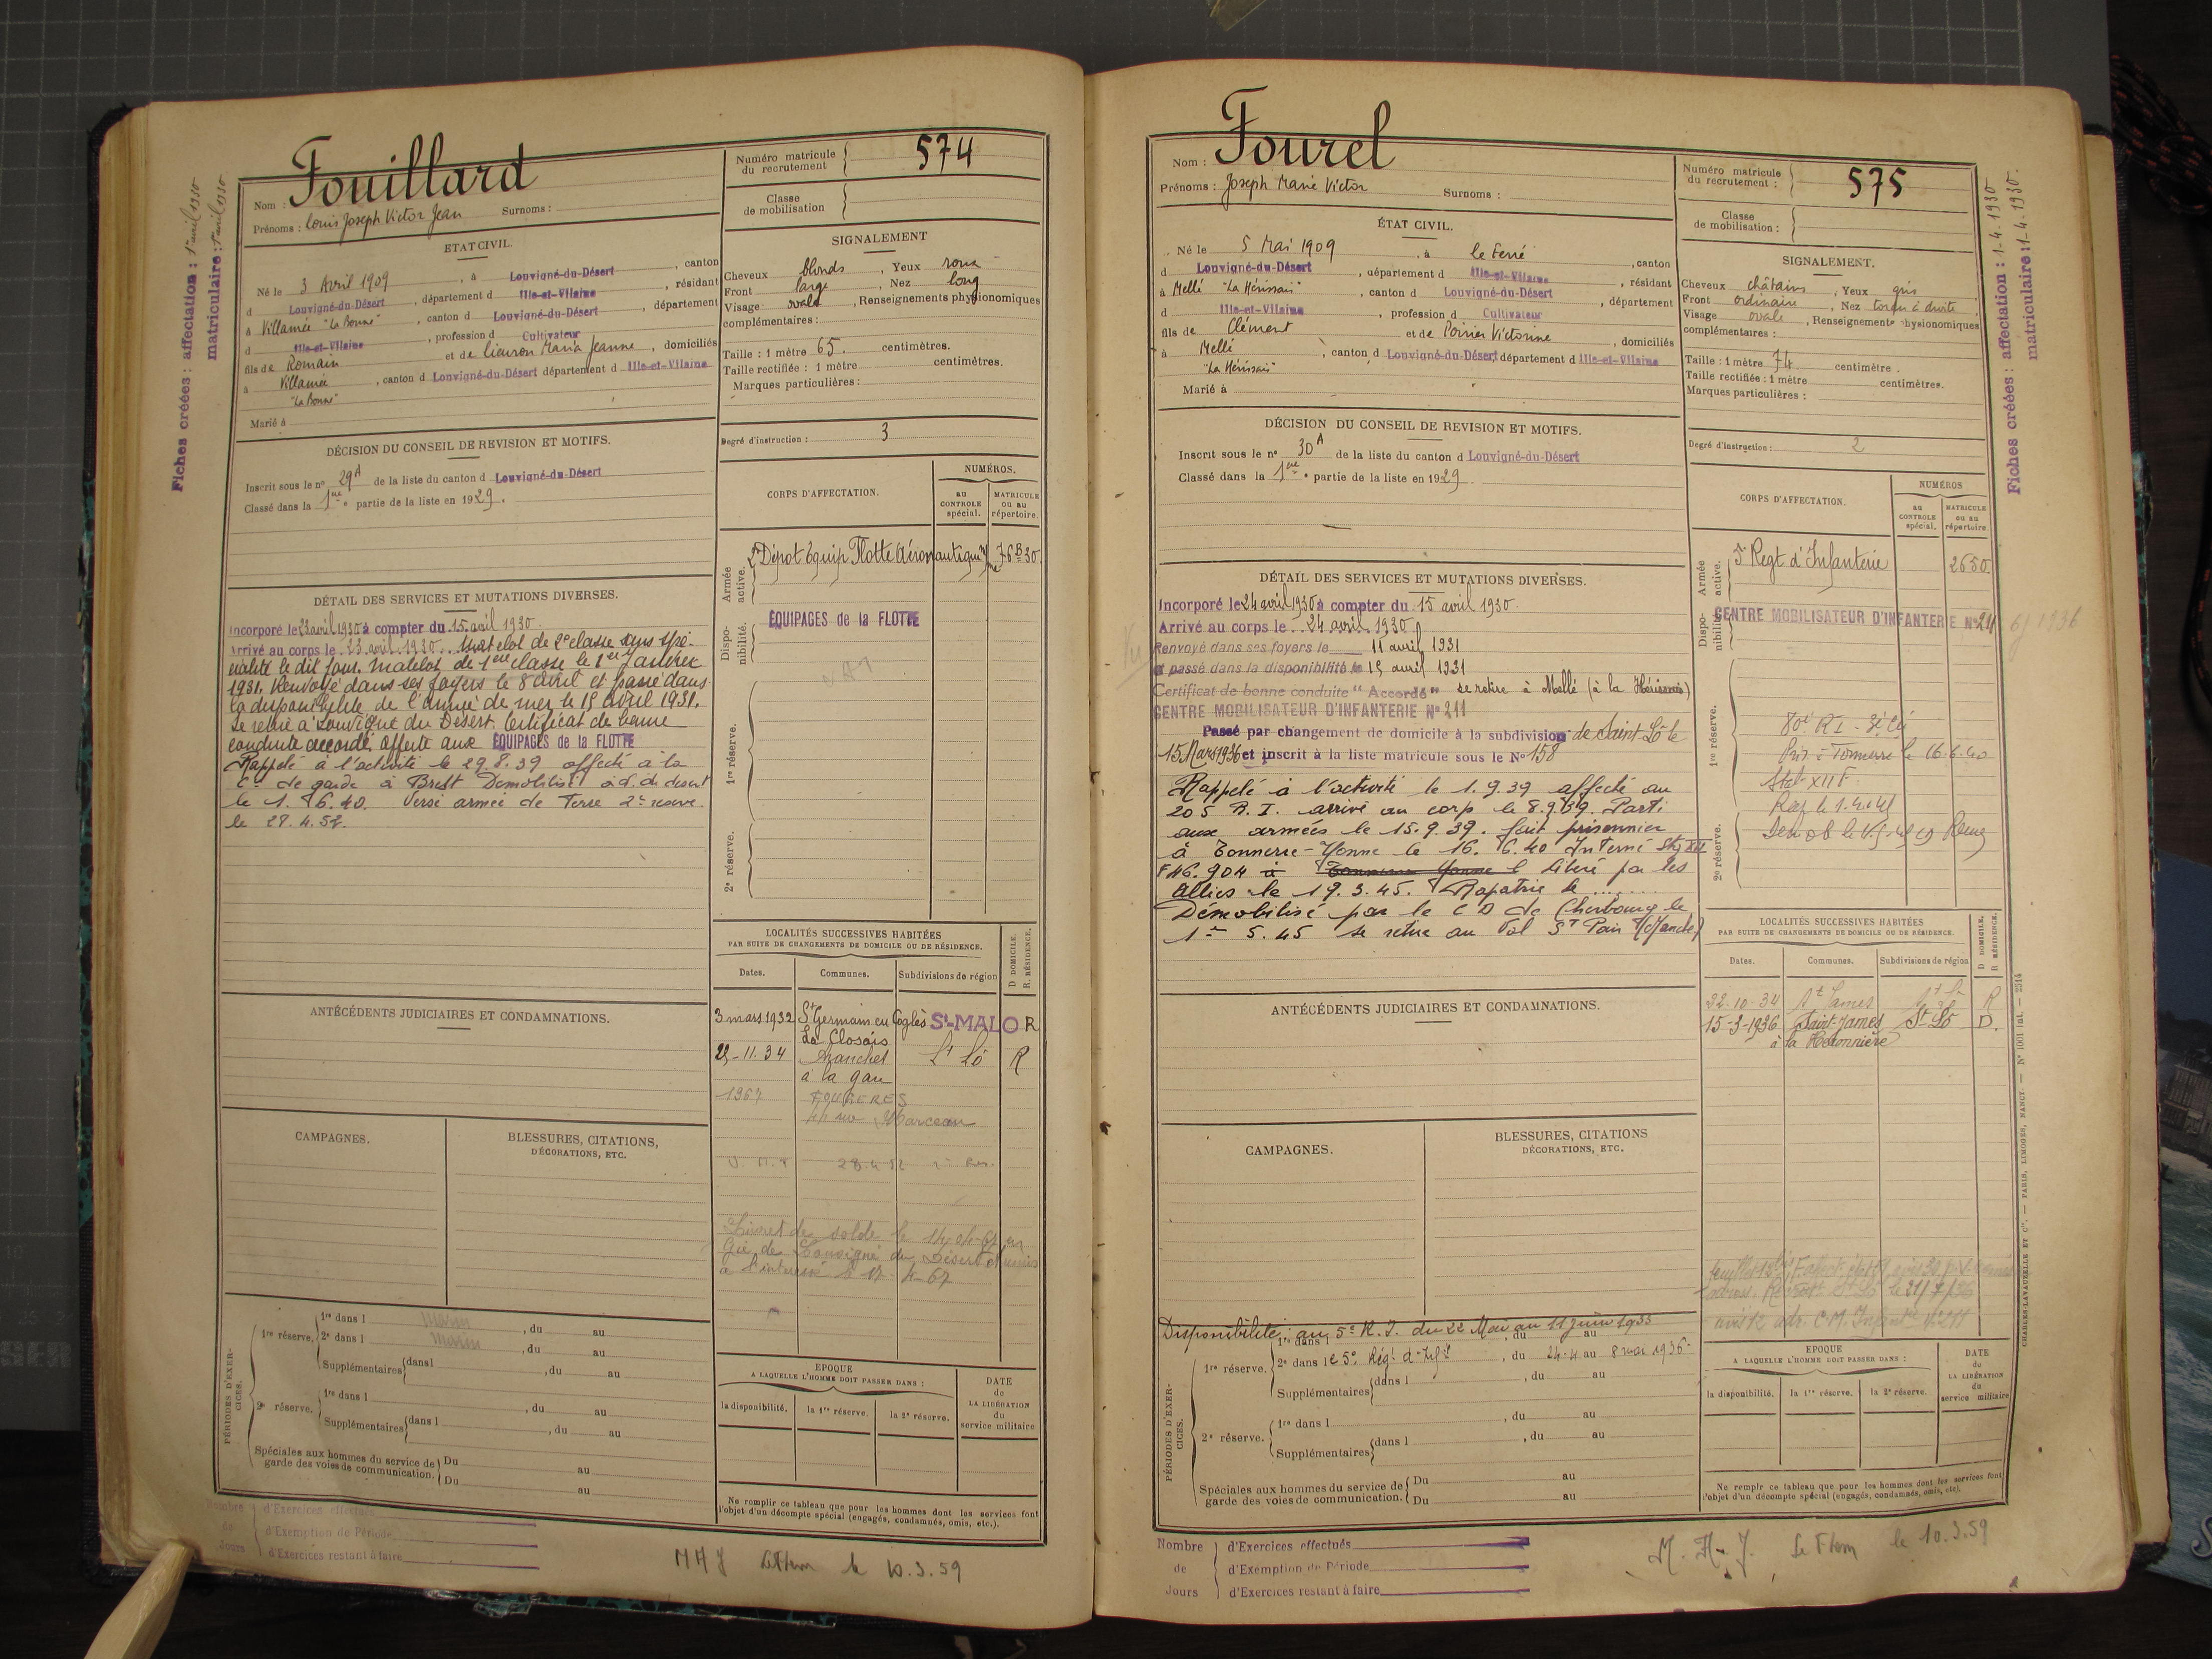 Fiches créées : affectation : 1er avril 1930
matriculaire : 1er avril 1930
Nom : Fouillard
Prénoms : Louis Joseph Victor Jean Surnoms :
Numéro matricule du recrutement 574
Classe de mobilisation
ETAT CIVIL.
Né le 3 Avril 1909, à Louvigné-du-Désert, canton
d Louvigné-du-Désert, département d Ille-et-Vilaine, résidant
à Villamée "La Bonne", canton d Louvigné-du-Désert, département
d Ille-et-Vilaine, profession d Cultivateur
fils de Romain et de Lieuron Maria Jeanne, domiciliés
à Villamée, canton d Louvigné-du-Désert département d Ille-et-Vilaine
"La Bonne"
Marié à
SIGNALEMENT
Cheveux blonds, Yeux roux
Front large, Nez long
Visage ovale, Renseignements physionomiques
complémentaires :
Taille : 1 mètre 65. centimètres.
Taille rectifiée : 1 mètre centimètres.
Marques particulières :
Degré d'instruction : 3
DÉCISION DU CONSEIL DE REVISION ET MOTIFS.
Inscrit sous le n° 29A de la liste du canton d Louvigné-du-Désert
Classé dans la 1ère partie de la liste en 1929.
CORPS D'AFFECTATION.
NUMÉROS.
au CONTROLE spécial.
MATRICULE ou au répertoire.
Armée active.
2e Dépot Equip Flotte Aéronautique 76B30
Disponibilité.
ÉQUIPAGES de la FLOTTE
1re réserve.
2e réserve.
DÉTAIL DES SERVICES ET MUTATIONS DIVERSES.
Incorporé le 23 avril 1930 à compter du 15 avril 1930
Arrivé au corps le 23 avril 1930. Matelot de 2e classe sans spé-
cialité le dit jour. Matelot de 1ère classe le 1er Janvier
1931. Renvoyé dans ses foyers le 8 avril et passé dans
la disponibilité de l'armée de mer le 15 avril 1931.
Se retire à Louvigné du Désert. Certificat de bonne
conduite accordé. Affecté aux ÉQUIPAGES de la FLOTTE
Rappelé à l'activité le 29.8.39 affecté à la
Cie de garde à Brest Démobilisé
le 1.6.40. Versé armée de Terre 2e réserve.
le 28.4.52.
LOCALITÉS SUCCESSIVES HABITÉES
PAR SUITE DE CHANGEMENTS DE DOMICILE OU DE RÉSIDENCE.
D DOMICILE. R. RÉSIDENCE.
Dates. Communes. Subdivisions de région
3 mars 1932 St Germain en Coglès St-MALO R
La Closais
29-11.34 Avranches St Lô R
à la gare
1967 FOUGERES
rue Marceau
28.4.52
Livret de solde le
Gie de Louvigné du Désert et remis
à l'intéressé le 17-4-67
ANTÉCÉDENTS JUDICIAIRES ET CONDAMNATIONS.
CAMPAGNES.
BLESSURES, CITATIONS,
DÉCORATIONS, ETC.
PÉRIODES D'EXERCICES.
1re réserve. 1re dans l Marin, du au
2e dans l Marin, du au
Supplémentaires dans l, du au
2e réserve. 1re dans l, du au
Supplémentaires dans l, du au
Spéciales aux hommes du service de garde des voies de communication. Du au
Du au
EPOQUE
A LAQUELLE L'HOMME DOIT PASSER DANS :
la disponibilité. la 1re réserve. la 2e réserve.
DATE de LA LIBÉRATION du service militaire
Ne remplir ce tableau que pour les hommes dont les services font
l'objet d'un décompte spécial (engagés, condamnés, omis, etc.).
Nombre de Jours
d'Exercices effectués
d'Exemption de Période
d'Exercices restant à faire
MAJ le 10.3.59
Nom : Fourel
Prénoms : Joseph Marie Victor Surnoms :
Numéro matricule du recrutement : 575
Classe de mobilisation :
Fiches créées : affectation : 1-4-1930
matriculaire : 1-4-1930.
ÉTAT CIVIL.
Né le 5 Mai 1909, à le Ferré, canton
d Louvigné-du-Désert, département d Ille-et-Vilaine, résidant
à Mellé "La Hérissais", canton d Louvigné-du-Désert, département
d Ille-et-Vilaine, profession d Cultivateur
fils de Clément et de Poirier Victorine, domiciliés
à Mellé, canton d Louvigné-du-Désert département d Ille-et-Vilaine
"La Hérissais"
Marié à
SIGNALEMENT.
Cheveux châtains, Yeux gris
Front ordinaire, Nez tordu à droite
Visage ovale, Renseignements physionomiques
complémentaires :
Taille : 1 mètre 74 centimètre.
Taille rectifiée : 1 mètre centimètres.
Marques particulières :
Degré d'instruction : 2
DÉCISION DU CONSEIL DE REVISION ET MOTIFS.
Inscrit sous le n° 30A de la liste du canton d Louvigné-du-Désert
Classé dans la 1ère partie de la liste en 1929
CORPS D'AFFECTATION.
NUMÉROS
au CONTROLE spécial.
MATRICULE ou au répertoire.
Armée active.
5e Regt d'Infanterie 2650
Disponibilité.
CENTRE MOBILISATEUR D'INFANTERIE N° 211
1936
1re réserve.
80e RI - 3e Cie
Pris : Tonnerre le 16.6.40
Stal XII F.
2e réserve.
DÉTAIL DES SERVICES ET MUTATIONS DIVERSES.
Incorporé le 24 avril 1930 à compter du 15 avril 1930.
Arrivé au corps le 24 avril 1930
Renvoyé dans ses foyers le 11 avril 1931
et passé dans la disponibilité le 15 avril 1931
Certificat de bonne conduite "Accordé" se retire à Mellé (à la Hérissais)
CENTRE MOBILISATEUR D'INFANTERIE N° 211
Passé par changement de domicile à la subdivision de Saint-Lô le
15 Mars 1936 et inscrit à la liste matricule sous le N° 158
Rappelé à l'activité le 1.9.39 affecté au
205 R.I. arrivé au corp le 8.9.39. Parti
aux armées le 15.9.39. fait prisonnier
à Tonnerre-Yonne le 16.6.40 Interné Stg XII
F 46.904 à Tonnerre Yonne Libéré par les
Alliés le 19.3.45. Rapatrié le .......
Démobilisé par le C D de Cherbourg le
1er 5.45 se retire au Val St Pair (Manche)
LOCALITÉS SUCCESSIVES HABITÉES
PAR SUITE DE CHANGEMENTS DE DOMICILE OU DE RÉSIDENCE.
D DOMICILE, R RÉSIDENCE.
Dates. Communes. Subdivisions de région
22-10-34 St James St Lô R
15-3-1936 Saint-James St-Lô D.
ANTÉCÉDENTS JUDICIAIRES ET CONDAMNATIONS.
CAMPAGNES.
BLESSURES, CITATIONS
DÉCORATIONS, ETC.
Disponibilité : au 5e R.I. du 22 Mai au 11 Juin 1933
PÉRIODES D'EXERCICES.
1re réserve. 1re dans l du au
2e dans le 5e Régt d'Infie, du 24-4 au 8 mai 1936
Supplémentaires dans l, du au
2e réserve. 1re dans l, du au
Supplémentaires dans l, du au
Spéciales aux hommes du service de garde des voies de communication. Du au
Du au
EPOQUE
A LAQUELLE L'HOMME DOIT PASSER DANS :
la disponibilité. la 1re réserve. la 2e réserve.
DATE de LA LIBÉRATION du service militaire
Ne remplr ce tableau que pour les hommes dont les services font
l'objet d'un décompte spécial (engagés, condamnés, omis, etc).
CHARLES-LAVAUZELLE ET Cie. — PARIS, LIMOGES, NANCY
Nombre de Jours
d'Exercices effectués
d'Exemption de Période
d'Exercices restant à faire
M.A.J. le 10.3.59